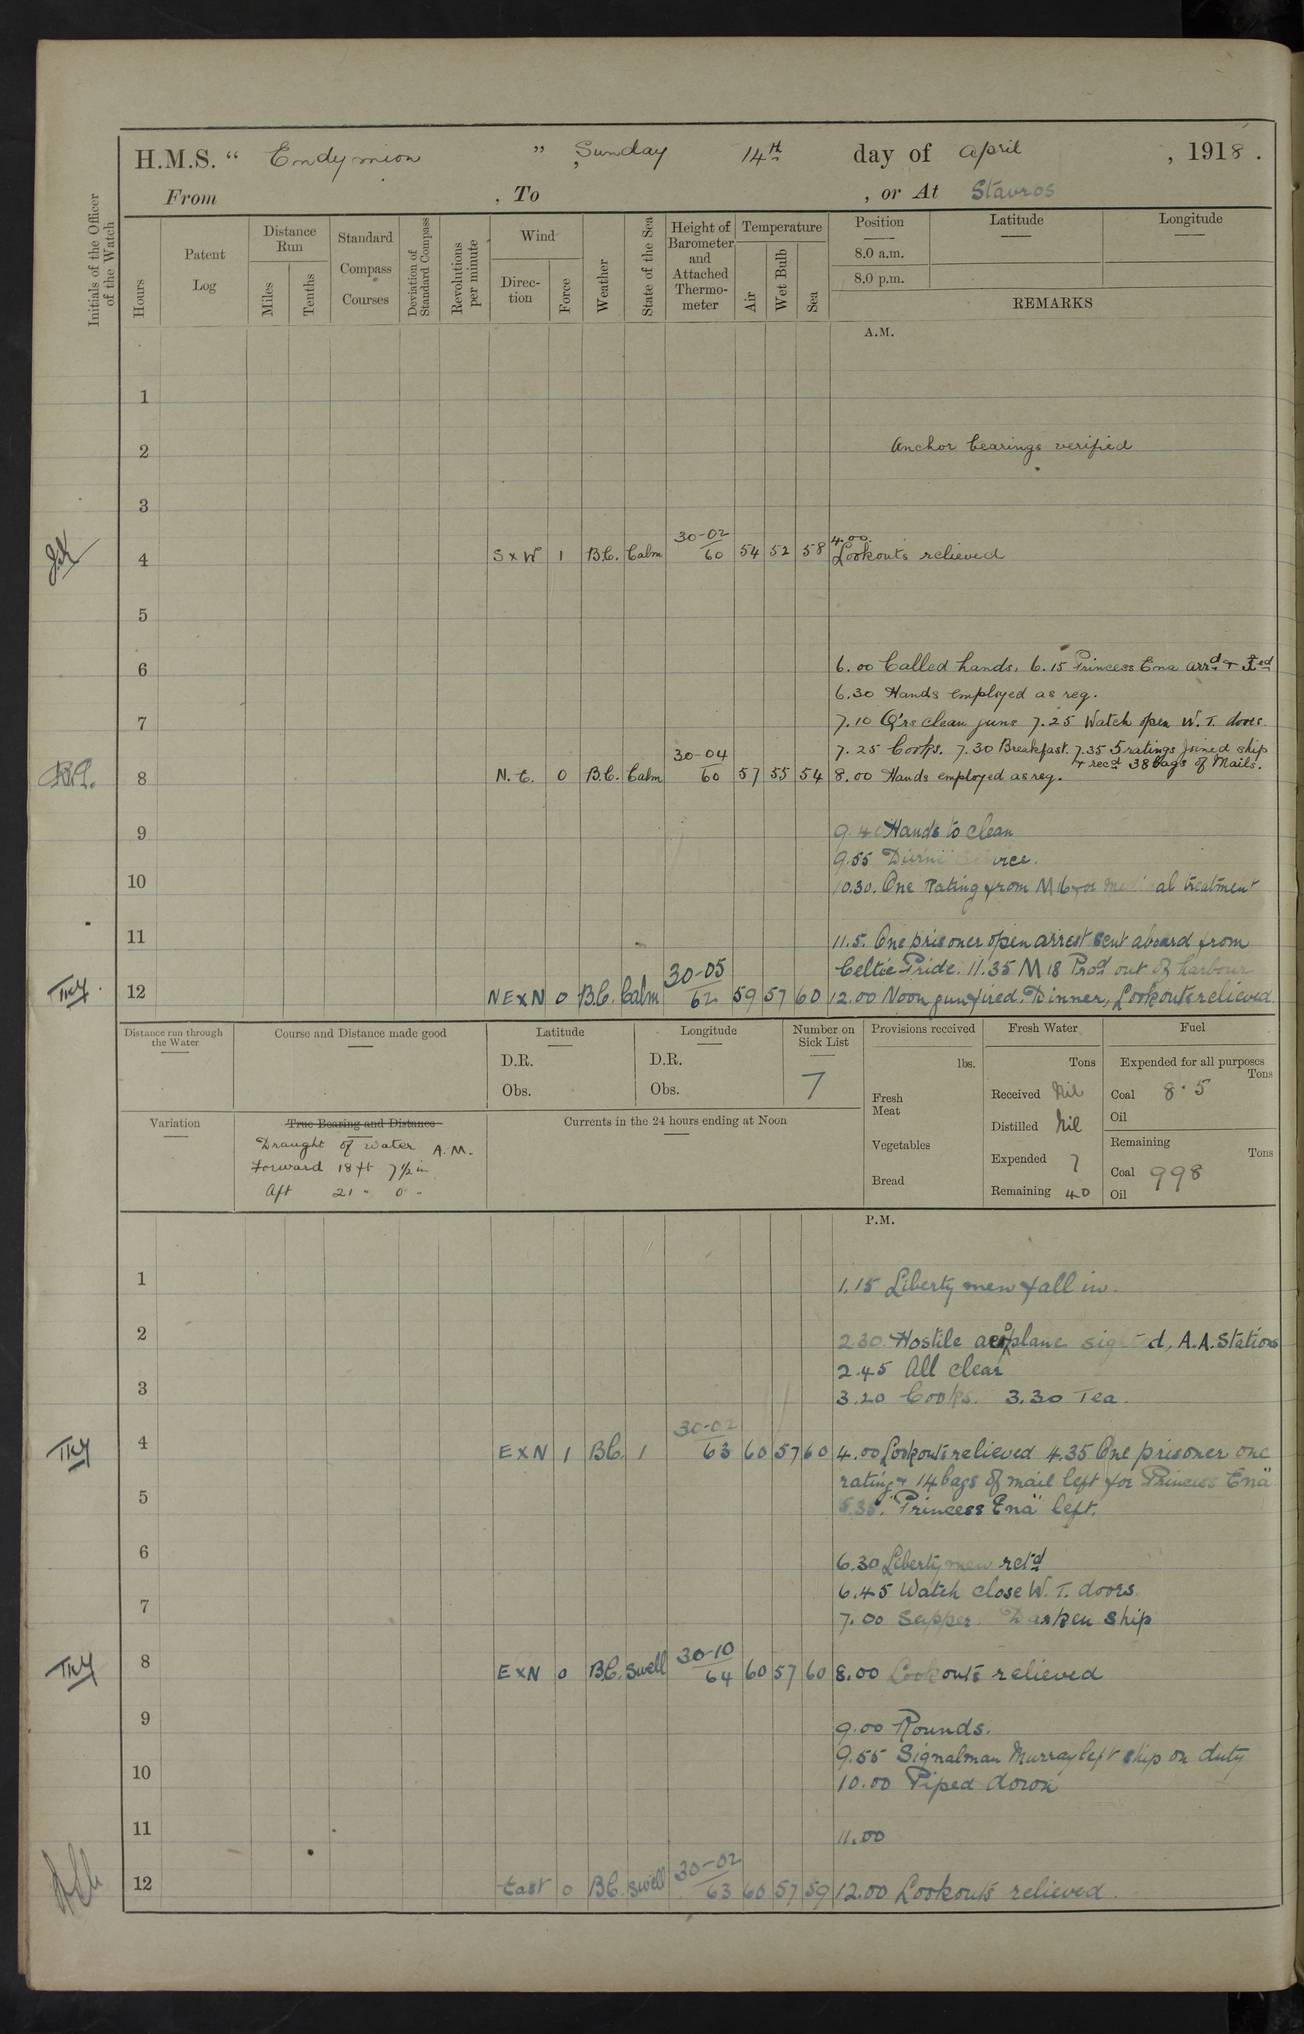 H.M.S. “ Endymion ” , Sunday 14th day of April , 1918 .
From , To , or At Stavros
Initials of the Officer of the Watch
Hours
Patent Log
Distance Run
Miles
Tenths
Standard Compass Courses
Deviation of Standard Compass
Revolutions per minute
Wind
Direction
Force
Weather
State of the Sea
Height of Barometer and Attached Thermometer
Temperature
Air
Wet Bulb
Sea
Position
8.0 a.m.
8.0 p.m.
Latitude
Longitude
REMARKS
A.M.
1
2 Anchor bearings verified
3
4.00.
4 S x W 1 B.C. Calm 30-02/60 54 52 58 Lookouts relieved
5
6 6.00 Called hands, 6.15 Princess Ena arrd &
6.30 Hands employed as reg.
7 7.10 Q'rs clean guns 7.25 Watch open W. T. doors
7.25 Cooks. 7.30 Breakfast. 7.35 5 ratings joined ship
& recd 38 bags of Mails.
8 N. E. 0 B.C. Calm 30-04/60 57 55 54 8.00 Hands employed as reg.
9 9.40 Hands to clean
9.55 Divine Service.
10 10.30. One Rating from M 16 for medical treatment
11 11.5. One prisoner open arrest sent aboard from
Celtic Pride. 11.35 M 18 Procd out of harbour
12 NE x N 0 B.C. Calm 30-05/62 59 57 60 12.00 Noon gun fired. Dinner, Lookouts relieved
Distance run through the Water
Course and Distance made good
Latitude
D.R.
Obs.
Longitude
D.R.
Obs.
Number on Sick List
7
Provisions received
lbs.
Fresh Meat
Vegetables
Bread
Fresh Water
Tons
Received Nil
Distilled Nil
Expended 7
Remaining 40
Fuel
Expended for all purposes
Tons
Coal 8.5
Oil
Remaining
Tons
Coal 998
Oil
Variation
True Bearing and Distance
Draught of water A.M.
Forward 18 ft 7 1/2 in
Aft 21 " 0 "
Currents in the 24 hours ending at Noon
P.M.
1 1.15 Liberty men fall in.
2 2.30. Hostile aeroplane sighted, A.A. Stations
2.45 All clear
3 3.20 Cooks. 3.30 Tea.
4 E x N 1 B.C. 1 30-02/63 60 57 60 4.00 Lookouts relieved 4.35 One prisoner one
rating & 14 bags of mail left for "Princess Ena"
5 5.35. "Princess Ena" left.
6 6.30 Liberty men retd
6.45 Watch close W. T. doors.
7 7.00 Supper. Darken ship
8 E x N 0 B.C. Swell 30-10/64 60 57 60 8.00 Lookouts relieved
9 9.00 Rounds.
9.55 Signalman Murray left ship on duty
10 10.00 Piped down
11 11.00
12 East 0 B.C. Swell 30-02/63 60 57 59 12.00 Lookouts relieved.